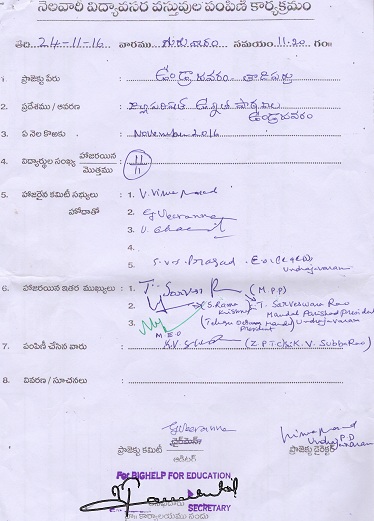 నెలవారీ విద్యావసర వస్తువుల పంపిణీ కార్యక్రమం
తేది. 24-11-16 వారము గురువారం సమయం. 11.20 గం॥
1. ప్రాజెక్టు పేరు : ఉండ్రాజవరం - తాడిపర్రు
2. ప్రదేశము / ఆవరణ : జిల్లాపరిషత్ ఉన్నత పాఠశాల ఉండ్రాజవరం
3. ఏ నెల కొఱకు : November 2016
4. విద్యార్థుల సంఖ్య హాజరయిన / మొత్తము : 11/11
5. హాజరైన కమిటీ సభ్యులు హోదాతో : 1. V. Vima prasad
2. G Veeranna
3. U.
4.
5. S.V.S. Prasad - Undrajavaram
6. హాజరయిన ఇతర ముఖ్యులు : 1. (M.P.P) T. Sarveswara Rao
2. (S. Rama Krishna) Mandal Parishad President
3. (Telugu Mandal President) Undrajavaram
M.E.O
7. పంపిణీ చేసిన వారు : K.V. (Z.P.T.C) K.V. Subba Rao)
8. వివరణ / సూచనలు :
G Veeranna
ప్రాజెక్టు కమిటీ ఛైర్మెన్
ఆడిటర్
P.D
Undrajavaram
ప్రాజెక్టు డైరెక్టర్
For BIGHELP FOR EDUCATION
SECRETARY
కార్యాలయము నందు